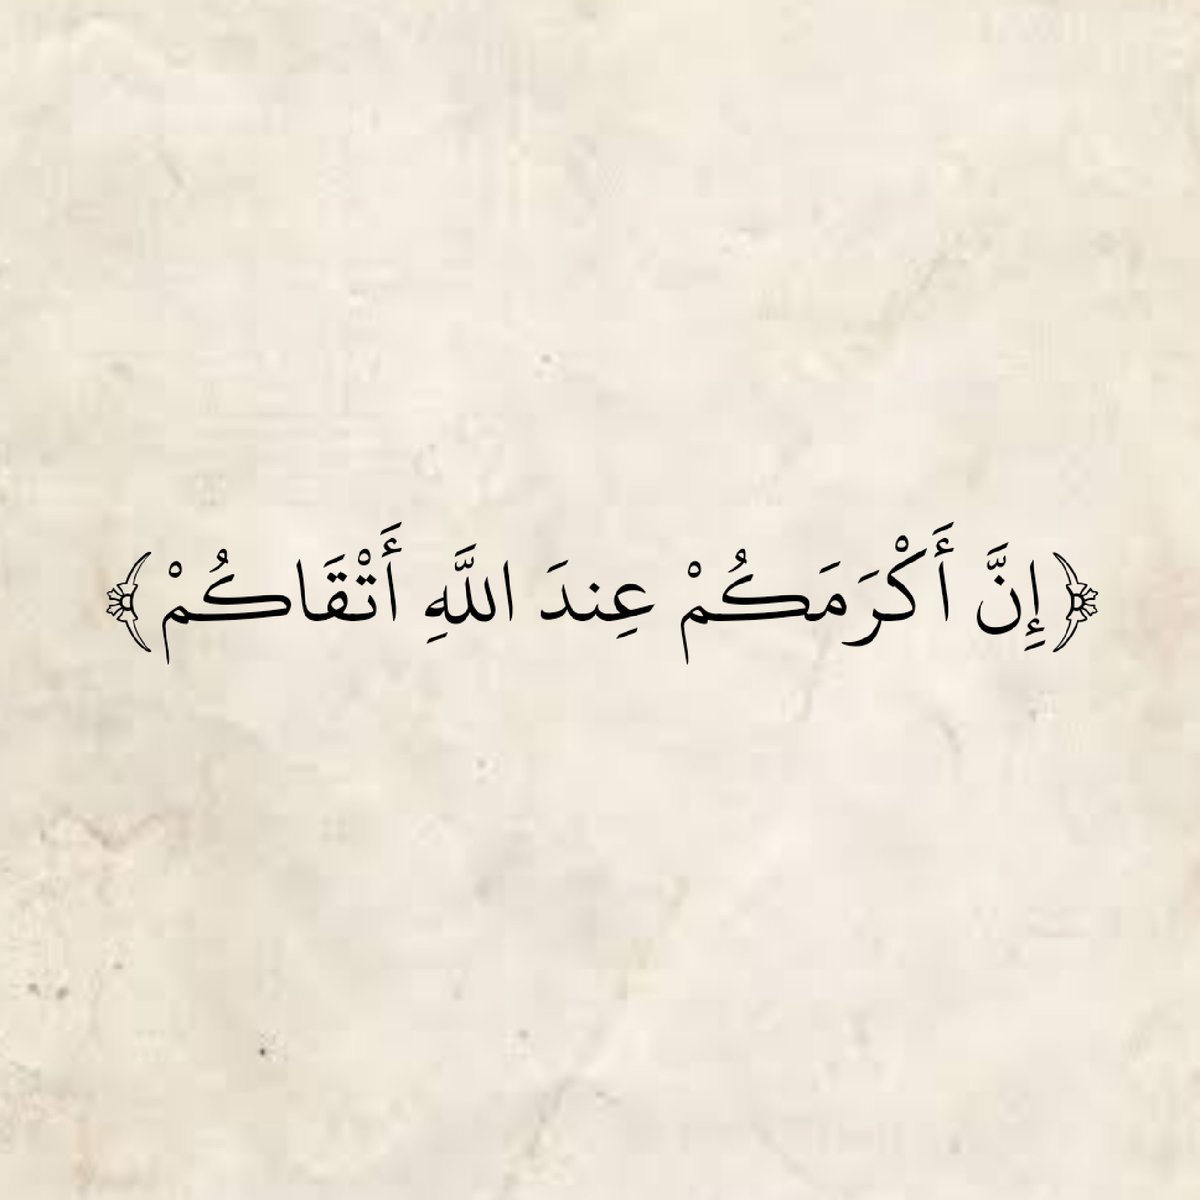 ﴿إِنَّ أَكْرَمَكُمْ عِندَ اللَّهِ أَتْقَاكُمْ﴾